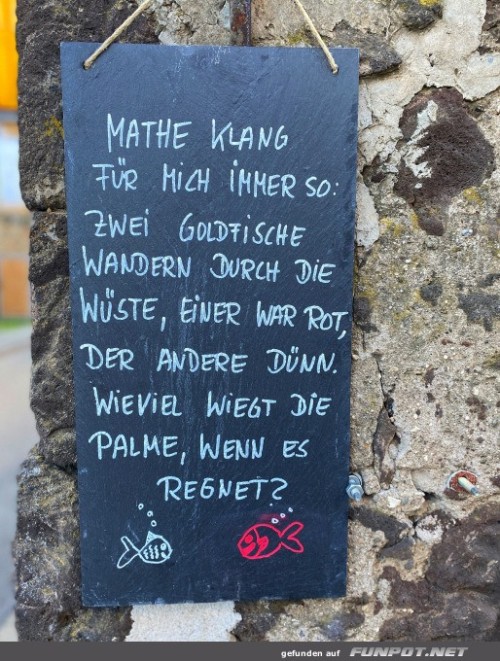 MATHE KLANG
FÜR MICH IMMER SO:
ZWEI GOLDFISCHE
WANDERN DURCH DIE
WÜSTE, EINER WAR ROT,
DER ANDERE DÜNN.
WIEVIEL WIEGT DIE
PALME, WENN ES
REGNET?
gefunden auf FUNPOT.NET